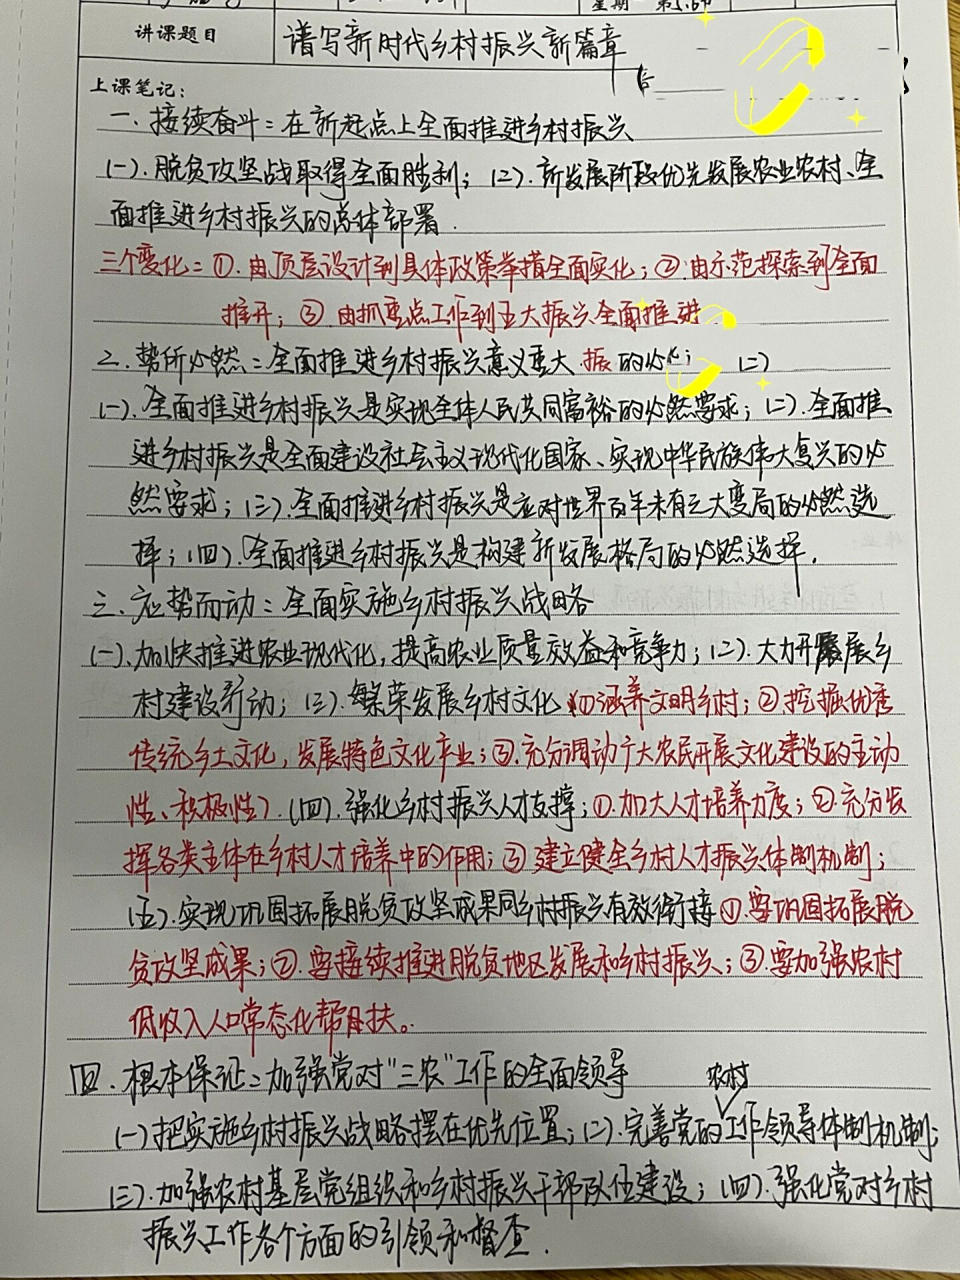 星期
讲课题目 谱写新时代乡村振兴新篇章
上课笔记：
一. 接续奋斗：在新起点上全面推进乡村振兴
(一). 脱贫攻坚战取得全面胜利；(二). 新发展阶段优先发展农业农村、全
面推进乡村振兴的总体部署.
三个变化：①. 由顶层设计到具体政策举措全面实化；②. 由示范探索到全面
推开；③. 由抓重点工作到五大振兴全面推进
二. 势所必然：全面推进乡村振兴意义重大 振的必 (二)
(一). 全面推进乡村振兴是实现全体人民共同富裕的必然要求；(二). 全面推
进乡村振兴是全面建设社会主义现代化国家、实现中华民族伟大复兴的必
然要求；(三). 全面推进乡村振兴是应对世界百年未有之大变局的必然选
择；(四). 全面推进乡村振兴是构建新发展格局的必然选择.
三. 应势而动：全面实施乡村振兴战略
(一). 加快推进农业现代化，提高农业质量效益和竞争力；(二). 大力开展乡
村建设行动；(三). 繁荣发展乡村文化 (①涵养文明乡村；②挖掘优秀
传统乡土文化，发展特色文化产业；③. 充分调动广大农民开展文化建设的主动
性、积极性). (四). 强化乡村振兴人才支撑；①. 加大人才培养力度；②. 充分发
挥各类主体在乡村人才培养中的作用；③ 建立健全乡村人才振兴体制机制；
(五). 实现巩固拓展脱贫攻坚成果同乡村振兴有效衔接 ①. 要巩固拓展脱
贫攻坚成果；②. 要接续推进脱贫地区发展和乡村振兴；③. 要加强农村
低收入人口常态化帮扶。
四. 根本保证：加强党对“三农”工作的全面领导
农村
(一) 把实施乡村振兴战略摆在优先位置；(二). 完善党的工作领导体制机制；
(三). 加强农村基层党组织和乡村振兴干部队伍建设；(四). 强化党对乡村
振兴工作各个方面的引领和督查.